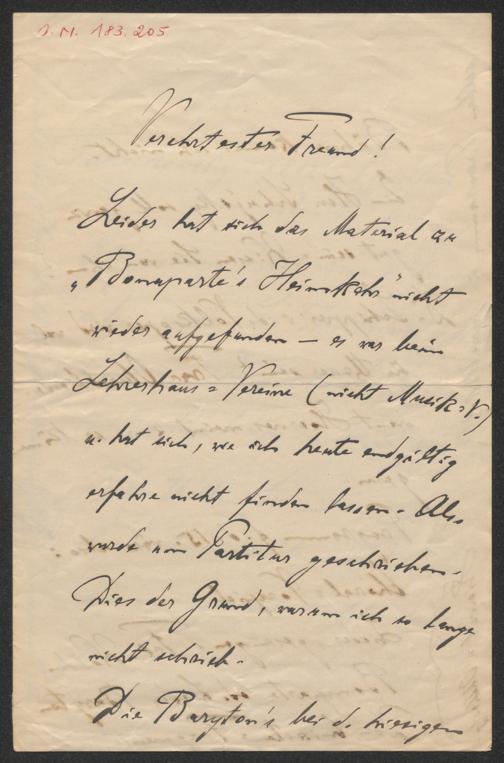 I. N. 183.205
Verehrtester Freund!
Leider hat sich das Material zu
„Bonaparte's Heimkehr" nicht
wieder aufgefunden – es war beim
Lehrerhaus = Vereine (nicht Musik=V.)
u. hat sich, wie ich heute endgültig
erfahre nicht finden lassen. Also
wurde um Partitur geschrieben.
Dies der Grund, warum ich so lange
nicht schrieb.
Die Baryton's bei d. hiesigen